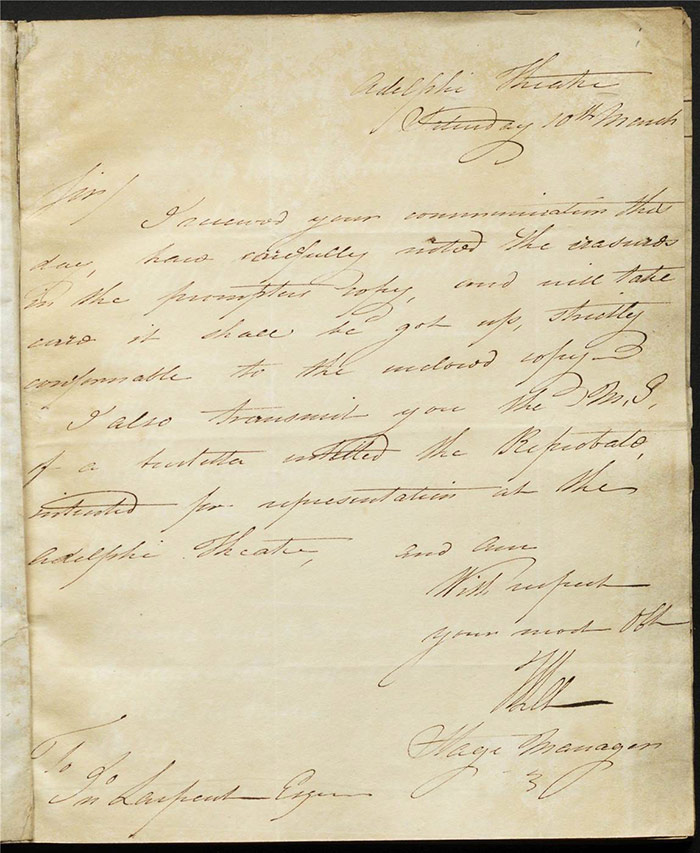 Adelphi Theatre
Saturday 10th March
Sir/
I received your communication this
day, have carefully noted the erasures
in the prompters copy, and will take
care it shall be got up, strictly
conformable to the inclosed copy
I also transmit you the M.S.
of a burletta entitled the Reprobate,
intended for representation at the
Adelphi Theatre, and am
With respect
your most Obt
Stage Manager
To
Jno Larpent Esqre